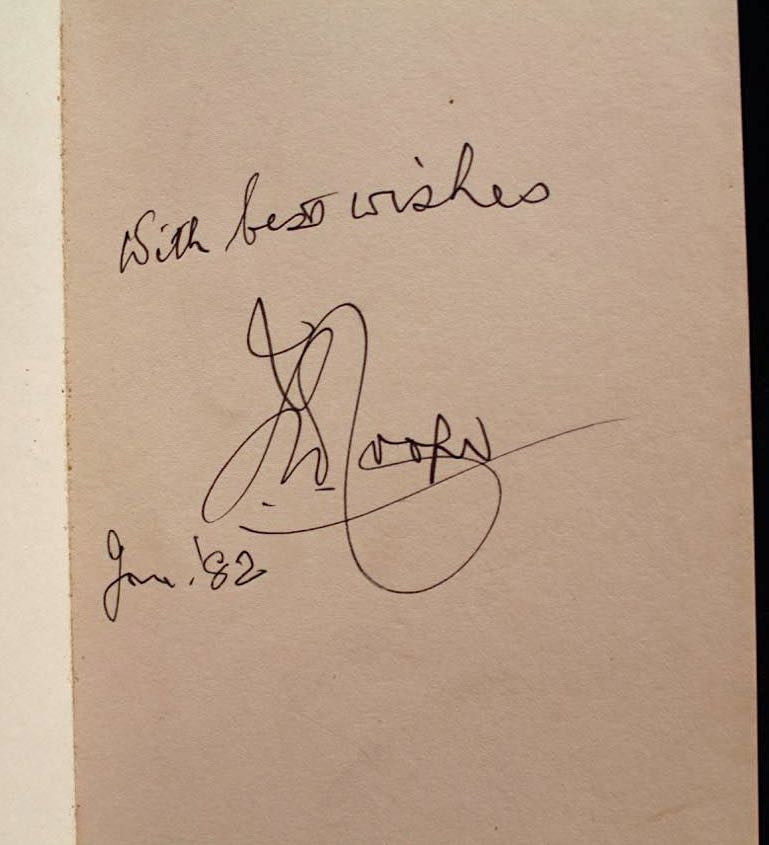 With best wishes
Jan. '82